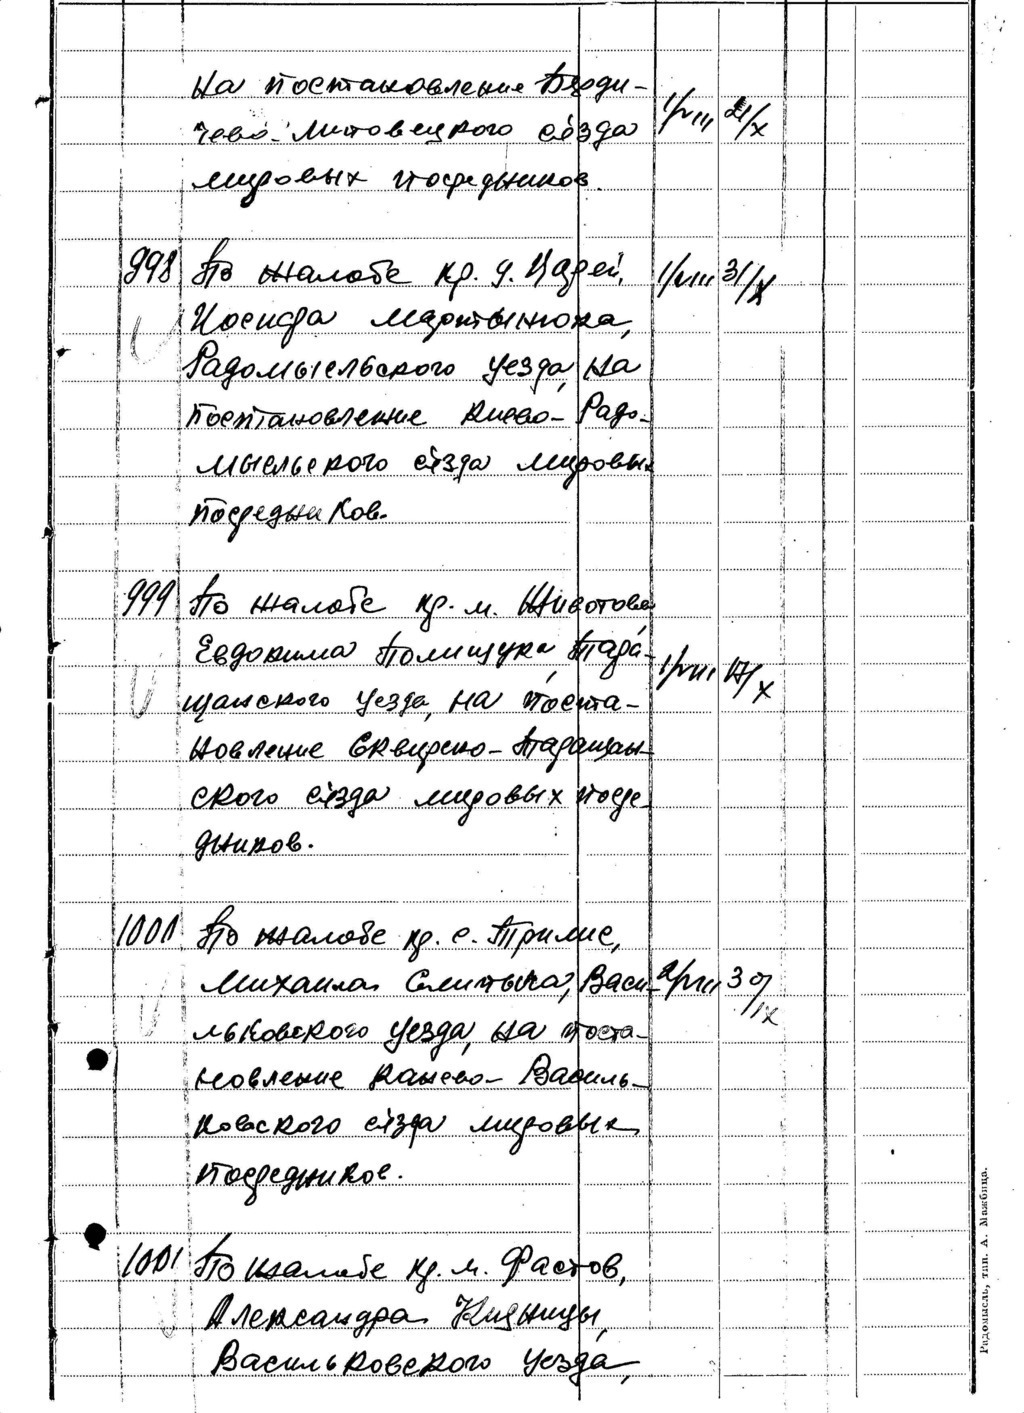 на постановление Берди-
чево-Липовецкого съезда 1/VIII 21/X
мировых посредников.
998 По жалобе кр. д. Цадей, 1/VIII 31/X
Иосифа Мартынюка,
Радомысльского уезда, на
постановление Киево-Радо-
мысльского съезда мировых
посредников.
999 По жалобе кр. м. Животова
Евдокима Полищука, Тара-
щанского уезда, на поста- 1/VIII 17/X
новление Сквирско-Таращан-
ского съезда мировых посре-
дников.
1000 По жалобе кр. с. Трилис,
Михаила, Васи- 2/VIII 30/IX
льковского уезда, на поста-
новление Канево-Василь-
ковского съезда мировых
посредников.
1001 По жалобе кр. м. Фастов,
Александра
Васильковского уезда,
Радомысль, тип. А. Мажбица.